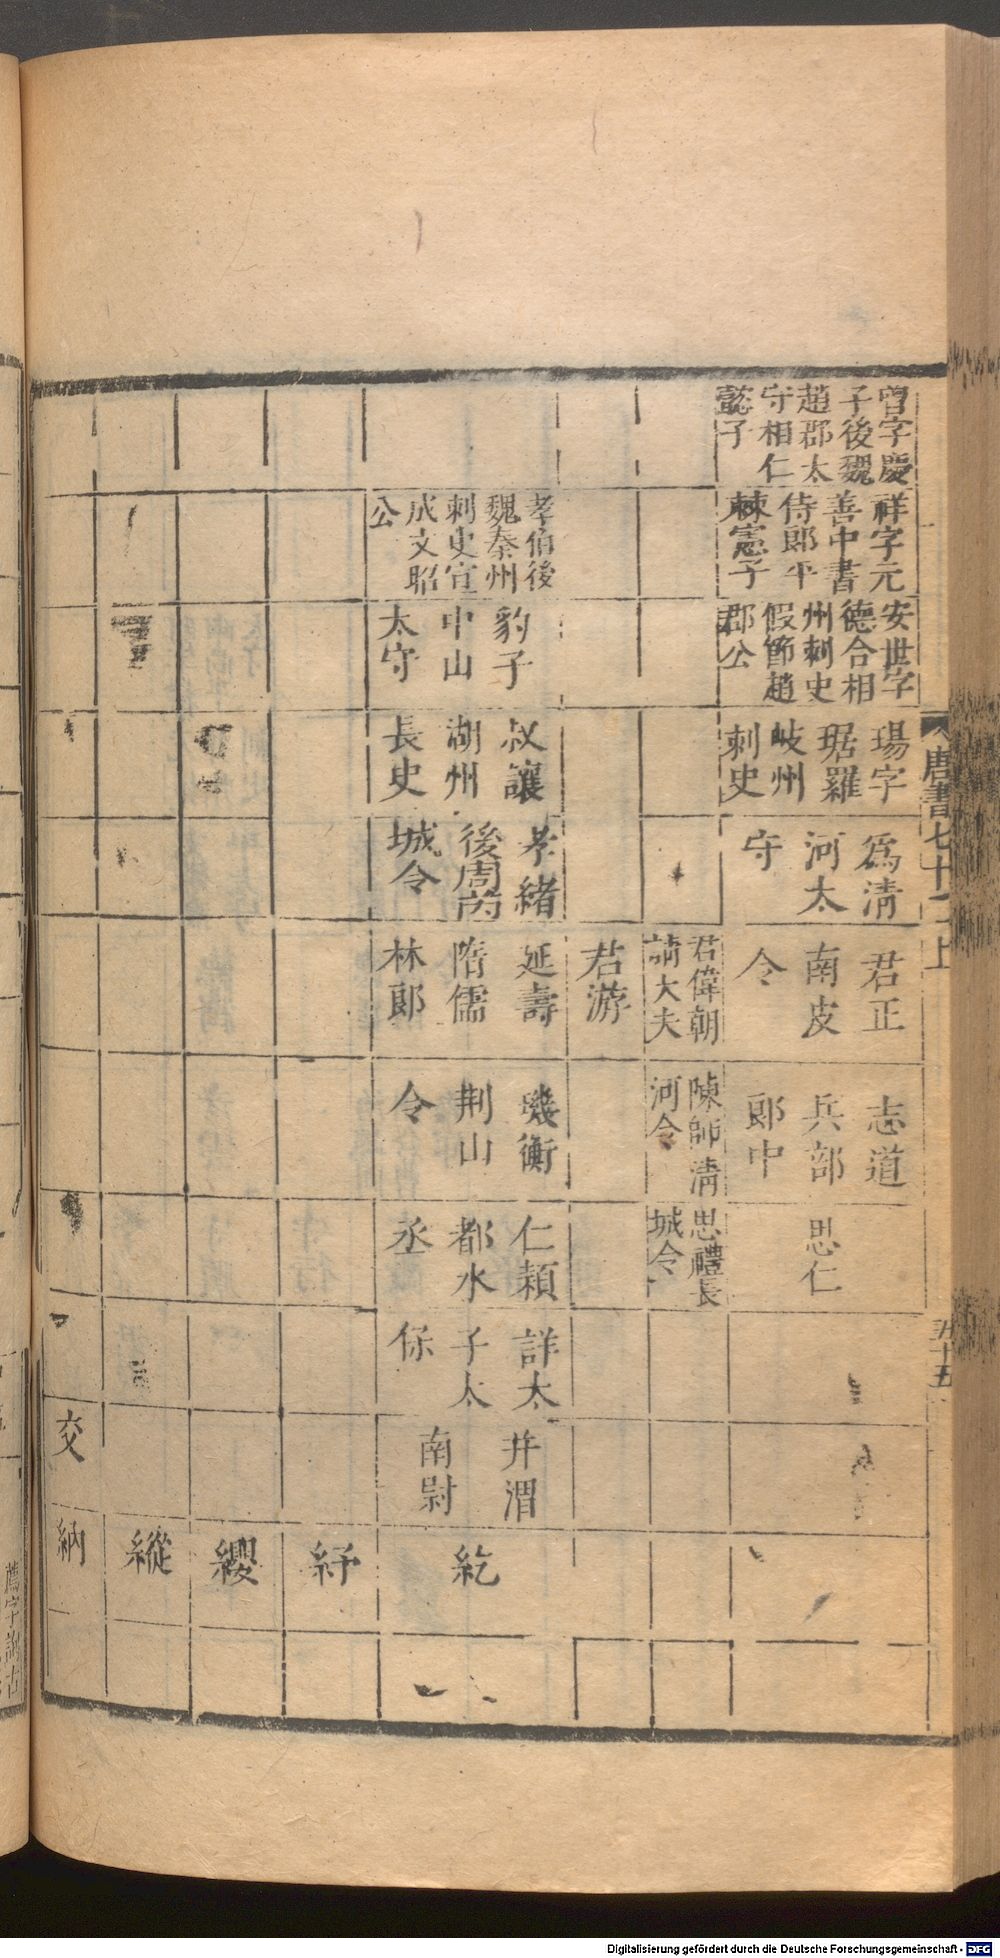 曾字慶
子後魏
趙郡太
守相仁
懿子
祥字元
善中書
侍郎平
棘憲子
安世字
德合相
州刺史
假節趙
郡公
瑒字
琚羅
岐州
刺史
爲清
河太
守
君正
南皮
令
志道
兵部
郎中
思仁
君偉朝
請大夫
陳師清
河令
思禮長
城令
君游
孝伯後
魏秦州
刺史宣
成文昭
公
豹子
中山
太守
叔讓
湖州
長史
孝緒
後周芮
城令
延壽
隋儒
林郎
璣衡
荆山
令
仁穎
都水
丞
詳太
子太
保
幷渭
南尉
紇
紓
纓
縱
交
納
唐書七十二上
五十五
Digitalisierung gefördert durch die Deutsche Forschungsgemeinschaft - DFG